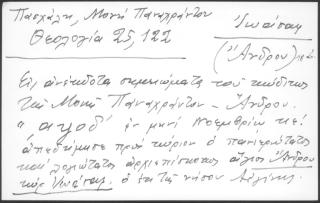 Πασχάλη, Μονή Παναχράντου
Θεολογία 25, 122
Ἰωάσαφ
(Ἄνδρου)
Εἰς ἀνέκδοτα σημειώματα τοῦ κώδικος
τῆς Μονῆς Παναχράντου - Ἄνδρου.
" αψοδ' ἐν μηνὶ Νοεμβρίῳ κε'
ἀπεδήμησε πρὸς κύριον ὁ πανιερώτατος
καὶ λογιώτατος ἀρχιεπίσκοπος ἅγιος Ἄνδρου
κύρ Ἰωάσαφ, ὁ ἐκ τῆς νήσου Αἰγίνης.